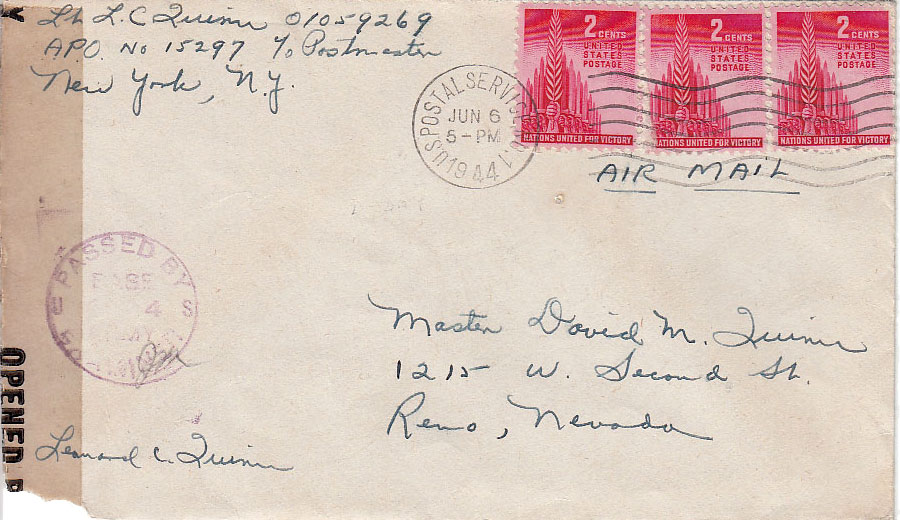 Lt. L. C. Quinn 01059269
A.P.O. No 15297 c/o Postmaster
New York, N.Y.
2 CENTS
UNITED
STATES
POSTAGE
NATIONS UNITED FOR VICTORY
2 CENTS
UNITED
STATES
POSTAGE
NATIONS UNITED FOR VICTORY
2 CENTS
UNITED
STATES
POSTAGE
NATIONS UNITED FOR VICTORY
U.S. POSTAL SERVICE
JUN 6
5-PM
1944
AIR MAIL
PASSED BY
BASE
4
ARMY
S
Master David M. Quinn
1215 W. Second St.
Reno, Nevada
OPENED
Leonard C. Quinn